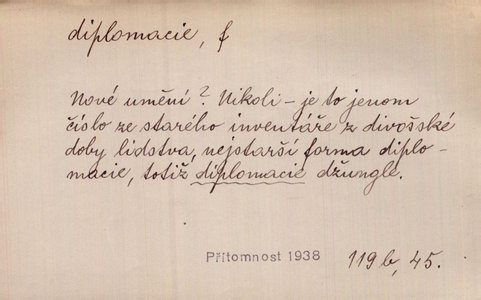 diplomacie, f
Nové umění? Nikoli – je to jenom
číslo ze starého inventáře z divošské
doby lidstva, nejstarší forma diplo-
macie, totiž diplomacie džungle.
Přítomnost 1938 119b, 45.